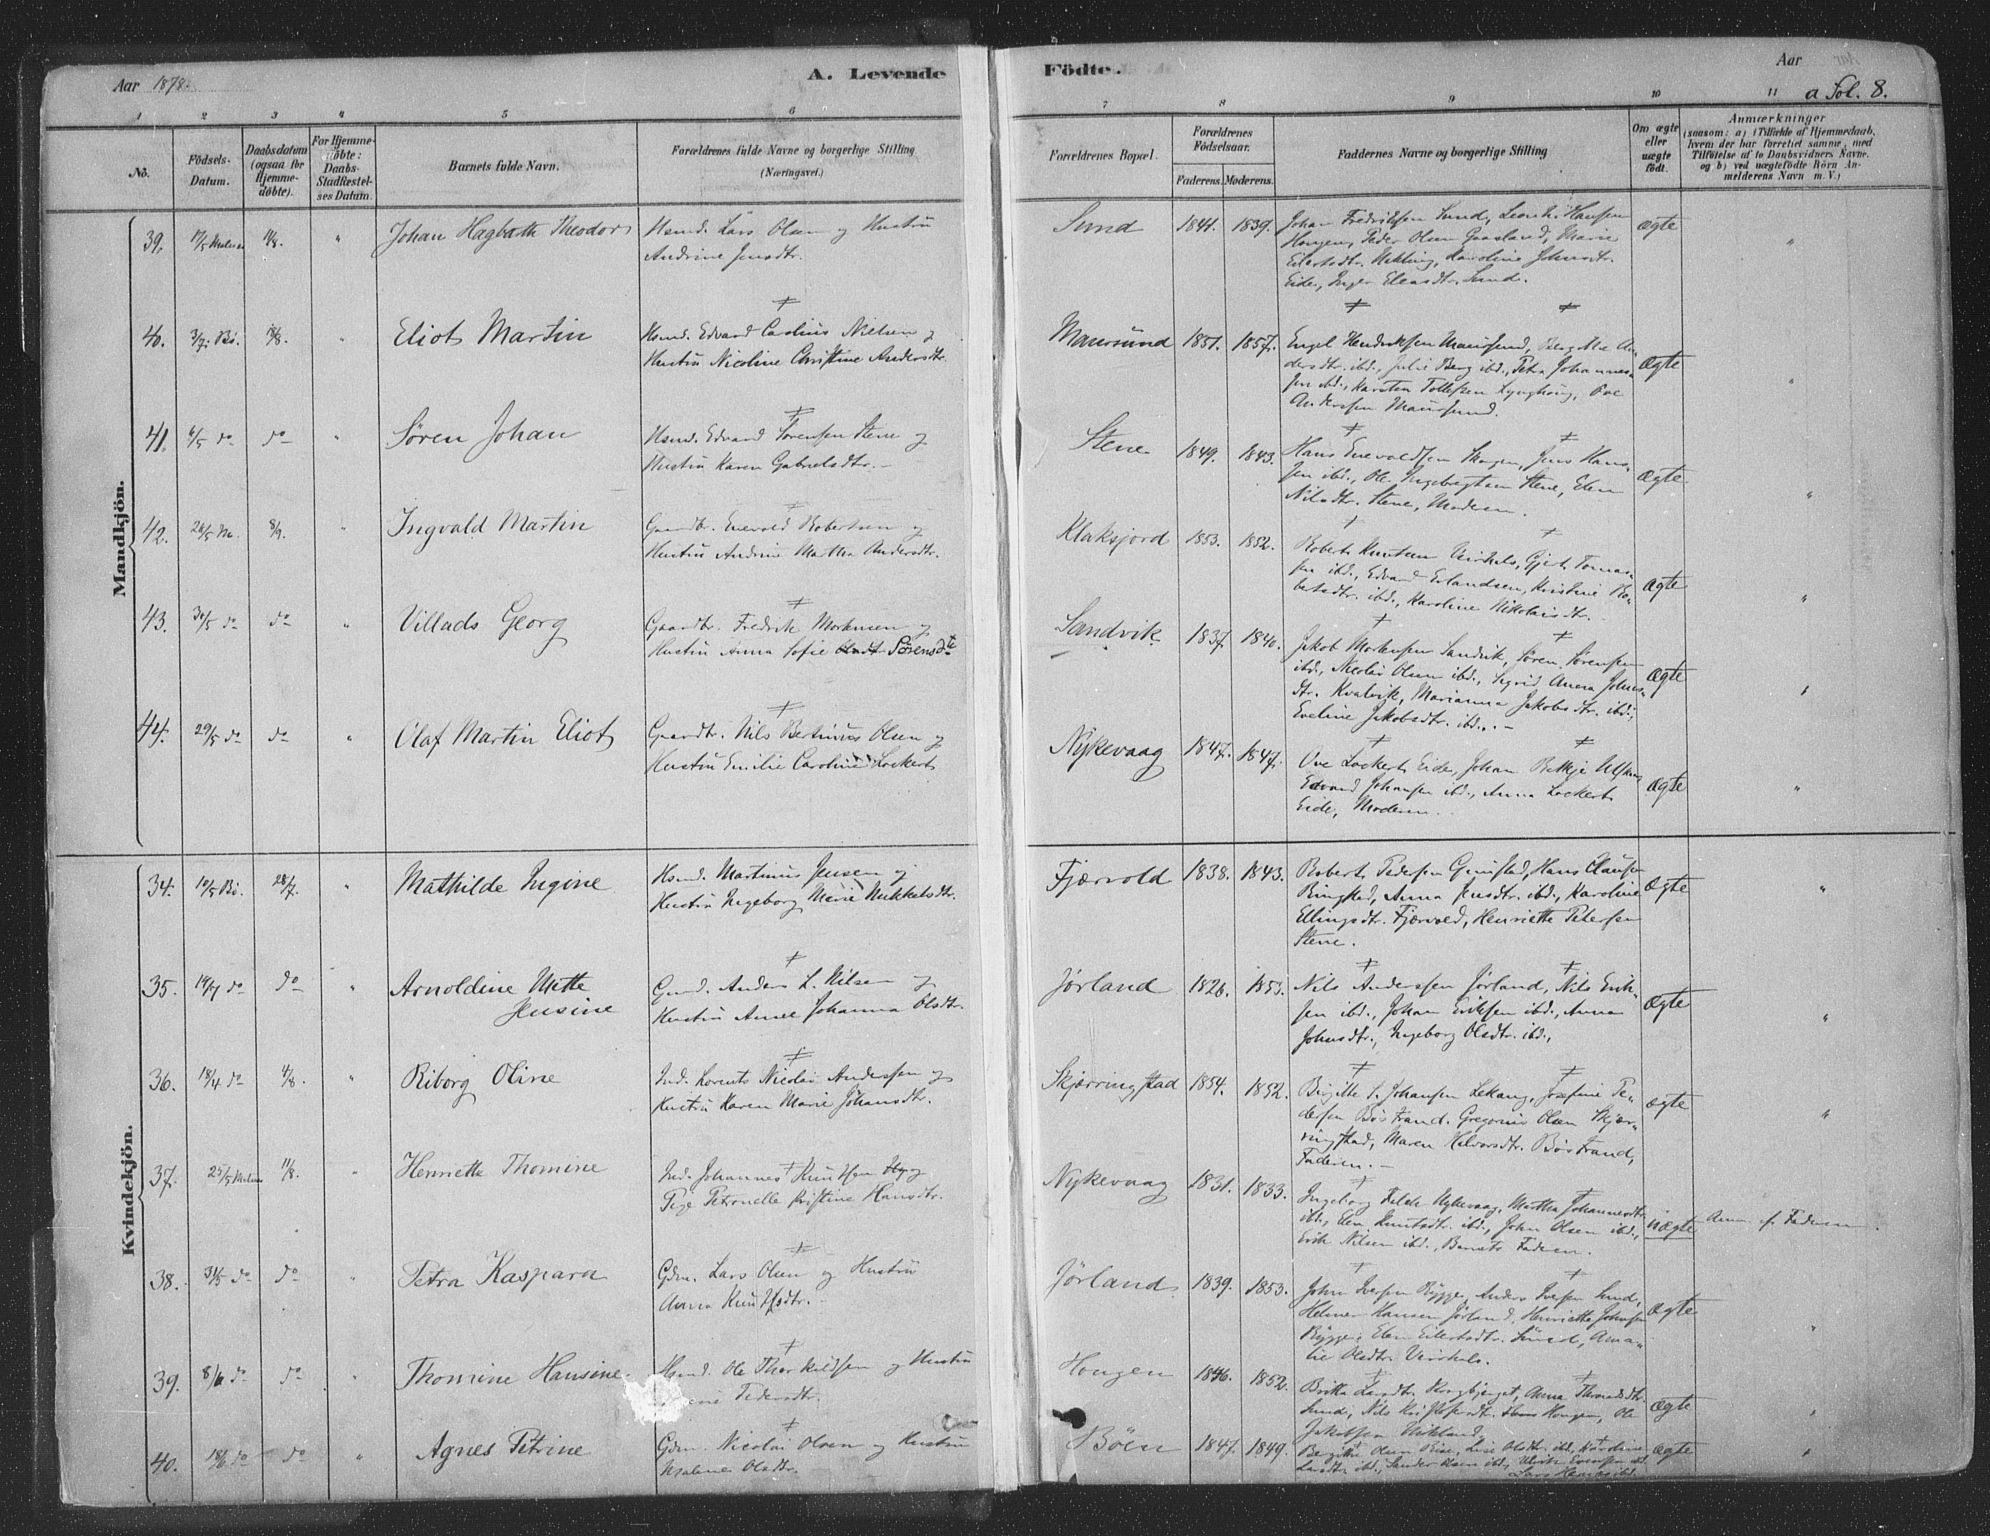 Aar 1878.
A. Levende
Födte.
Aar
a Fol. 8.
1 2 3 4 5 6 7 8 9 10 11
No.
Födsels-Datum.
Daabsdatum (ogsaa for Hjemmedöbte).
For Hjemmedöbte: Daabs-Stadfæstelses Datum.
Barnets fulde Navn.
Forældrenes fulde Navne og borgerlige Stilling
(Næringsvei.)
Forældrenes Bopæl.
Forældrenes Födselsaar.
Faderens. Moderens.
Faddernes Navne og borgerlige Stilling
Om ægte eller uægte födt.
Anmærkninger
(saasom: a) i Tilfælde af Hjemmedaab,
hvem der har forrettet samme, med
Tilföielse af to Daabsvidners Navne,
og b) ved uægtefödte Börn An-
melderens Navn m. V.)
Mandkjön.
39. 11/8. " Johan Hagbarth Theodor Hsmd. Lars Olsen og Hustru
Andrine Jensdtr.
Sund 1841. 1839. Johan Fredriksen Sund, Hansen
Hongen, Peder Olsen Gaasland, Marie
Eilertsdtr. Karoline Johnsdtr.
Eide, Inger Eliasdtr. Sund. ægte "
40. 3/7. Bö. 18/8. " Eliot Martin Hsmd. Edvard Carolius Nielsen og
Hustru Nicoline Christine Andersdtr.
Maursund 1851. 1857. Engel Hendriksen Maursund, An-
dersdtr. ibd., Julie Berg ibd., Petra Johannes-
sen ibd., Karsten Tollefsen Lynghaug, Ove
Anderssen Maursund. Ægte "
41. 6/5 do do " Sören Johan Hsmd. Edvard Sörensen Stene og
Hustru Karen Gabrielsdtr.
Stene 1849. 1843. Hans Enevoldsen Skogen, Jens Han-
sen ibd., Ole Ingebrigtsen Stene, Elen
Nilsdtr. Stene, Moderen. Ægte "
42. 26/5 M. 8/9. " Ingvald Martin Gaardbr. Enevold Robertsen og
Hustru Andrine Martha Andersdtr.
Klaksjord 1853. 1852. Robert Knutsen Gjert Tomas-
sen ibd., Edvard Erlandsen, Kristine Ro-
bertsdtr. ibd., Karoline Nikolaisdtr. ægte "
43. 30/5 do do " Villads Georg Gaardbr. Fredrik Mortensen og
Hustru Anna Sofie Sörensdtr
Sandvik. 1837 1840. Jakob Mortensen Sandvik, Sören Sörensen
ibd., Nicolai Olsen ibd., Sigrid Anna Johns-
dtr. Kvalvik, Marianna Jakobsdtr. ibd.,
Eveline Jakobsdtr. ibd. ægte "
44. 29/5 do do " Olaf Martin Eliot Gaardbr. Nils Bertinius Olsen og
Hustru Emilie Caroline Lockert
Nykevaag 1847. 1847. Ove Lockert Eide, Johan
Edvard Johansen ibd., Anna Lockert
Eide, Moderen. Ægte "
Kvindekjön.
34. 10/5 Bö. 28/7. " Mathilde Ingine Hsmd. Martinus Jensen og
Hustru Ingeborg Marie Mikkelsdtr.
Fjærvold 1838. 1843. Robert Pedersen Grimstad, Hans Clausen
Ringstad, Anna Jensdtr. ibd., Karoline
Ellingsdtr. Fjærvold, Henriette Petersen
Stene. Ægte "
35. 14/7 do do " Arnoldine Mette
Jensine
Gmd. Anders L. Nilsen og
Hustru Anne Johanna Olsdtr.
Jörland 1826. 1853. Nils Anderssen Jörland, Nils Erik-
sen ibd., Johan Eriksen ibd., Anna
Johnsdtr., Ingeborg Olsdtr. ibd., Ægte "
36. 18/4 do 4/8. " Riborg Oline Ind. Lorents Nicolai Andersen og
Hustru Karen Marie Johansdtr.
Skjærringstad 1854. 1852. Birgitte S. Johansen Lekang, Josefine Pe-
dersen Böstrand. Gregorius Olsen Skjær-
ringstad, Maren Halvorsdtr. Böstrand,
Faderen. ægte "
37. 25/5 11/8. " Henriette Thomine Ind. Johannes Knutsen og
Pige Petronelle Kristine Hansdtr.
Nykevaag 1831. 1833. Ingeborg Nykevaag, Martha Johannesdtr.
ibd., Elen Knutsdtr. ibd., John Olsen ibd.,
Erik Nilsen ibd., Barnets Faderen. uægte Anm. af Faderen.
38. 31/5 do do " Petra Kaspara Gdm. Lars Olsen og Hustru
Anna Knutsdtr.
Jörland 1839. 1853. John Iversen Rygge, Anders Iversen Sund,
Helmer Hansen Jörland, Henriette Johnsen
Rygge, Elen Eilertsdtr. Sund, Ama-
lie Olsdtr. Ægte "
39. 8/6 do do Thomine Hansine. Hsmd. Ole Thorkildsen og Hustru
Pedersdtr.
Hongen 1846. 1852. Britta Larsdtr. Anna
Sund, Nils Hongen, Ole
Jakobsen ægte "
40. 18/6 do do " Agnes Petrine Gdm. Nicolai Olsen og Hustru
Olsdtr.
Böen 1847. 1849. Olsen Böe, Lise Olsdtr. ibd., Karoline
Larsdtr. ibd., Sander Olsen ibd., ibd.
ægte "